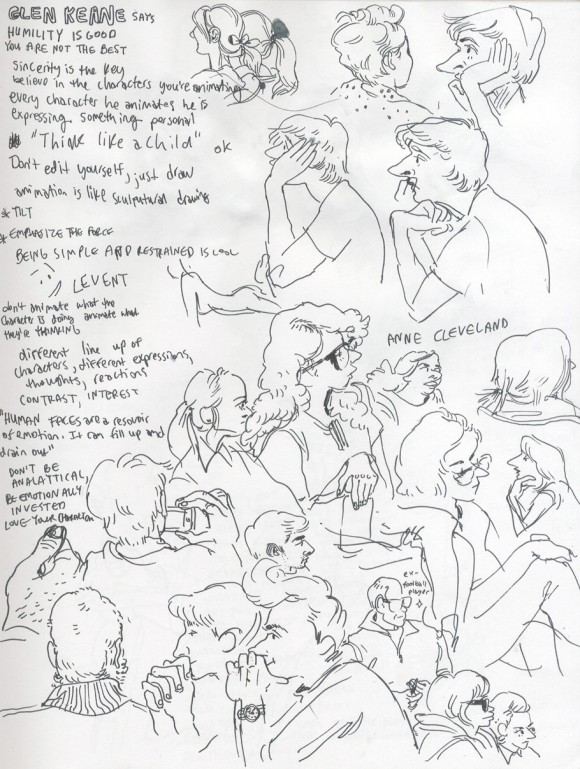 GLEN KEANE SAYS
HUMILITY IS GOOD
YOU ARE NOT THE BEST
Sincerity is the key
believe in the characters you're animating
every character he animates he is
expressing something personal
"Think like a child" ok
Don't edit yourself, just draw
animation is like sculptural drawing
* TILT
* EMPHASIZE THE FORCE
BEING SIMPLE AND RESTRAINED IS COOL
LEVENT
don't animate what the
character is doing animate what
they're THINKING
different line up of
characters, different expressions,
thoughts, reactions
CONTRAST, INTEREST
"HUMAN FACES are a resevoir
of emotion. It can fill up and
drain out"
DON'T BE
ANALATTICAL,
BE EMOTIONALLY
INVESTED
LOVE YOUR
ANNE CLEVELAND
ex-
football
player